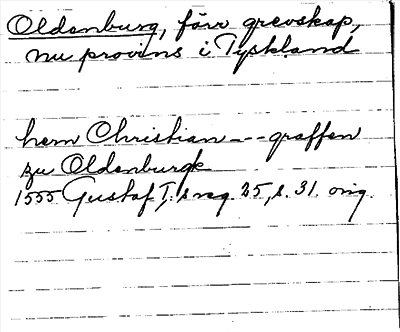 Oldenburg, förr grevskap,
nu provins i Tyskland
hern Christian --- graffen
zu Oldenburgk
1555 Gustaf I, s reg. 25, s. 31. orig.